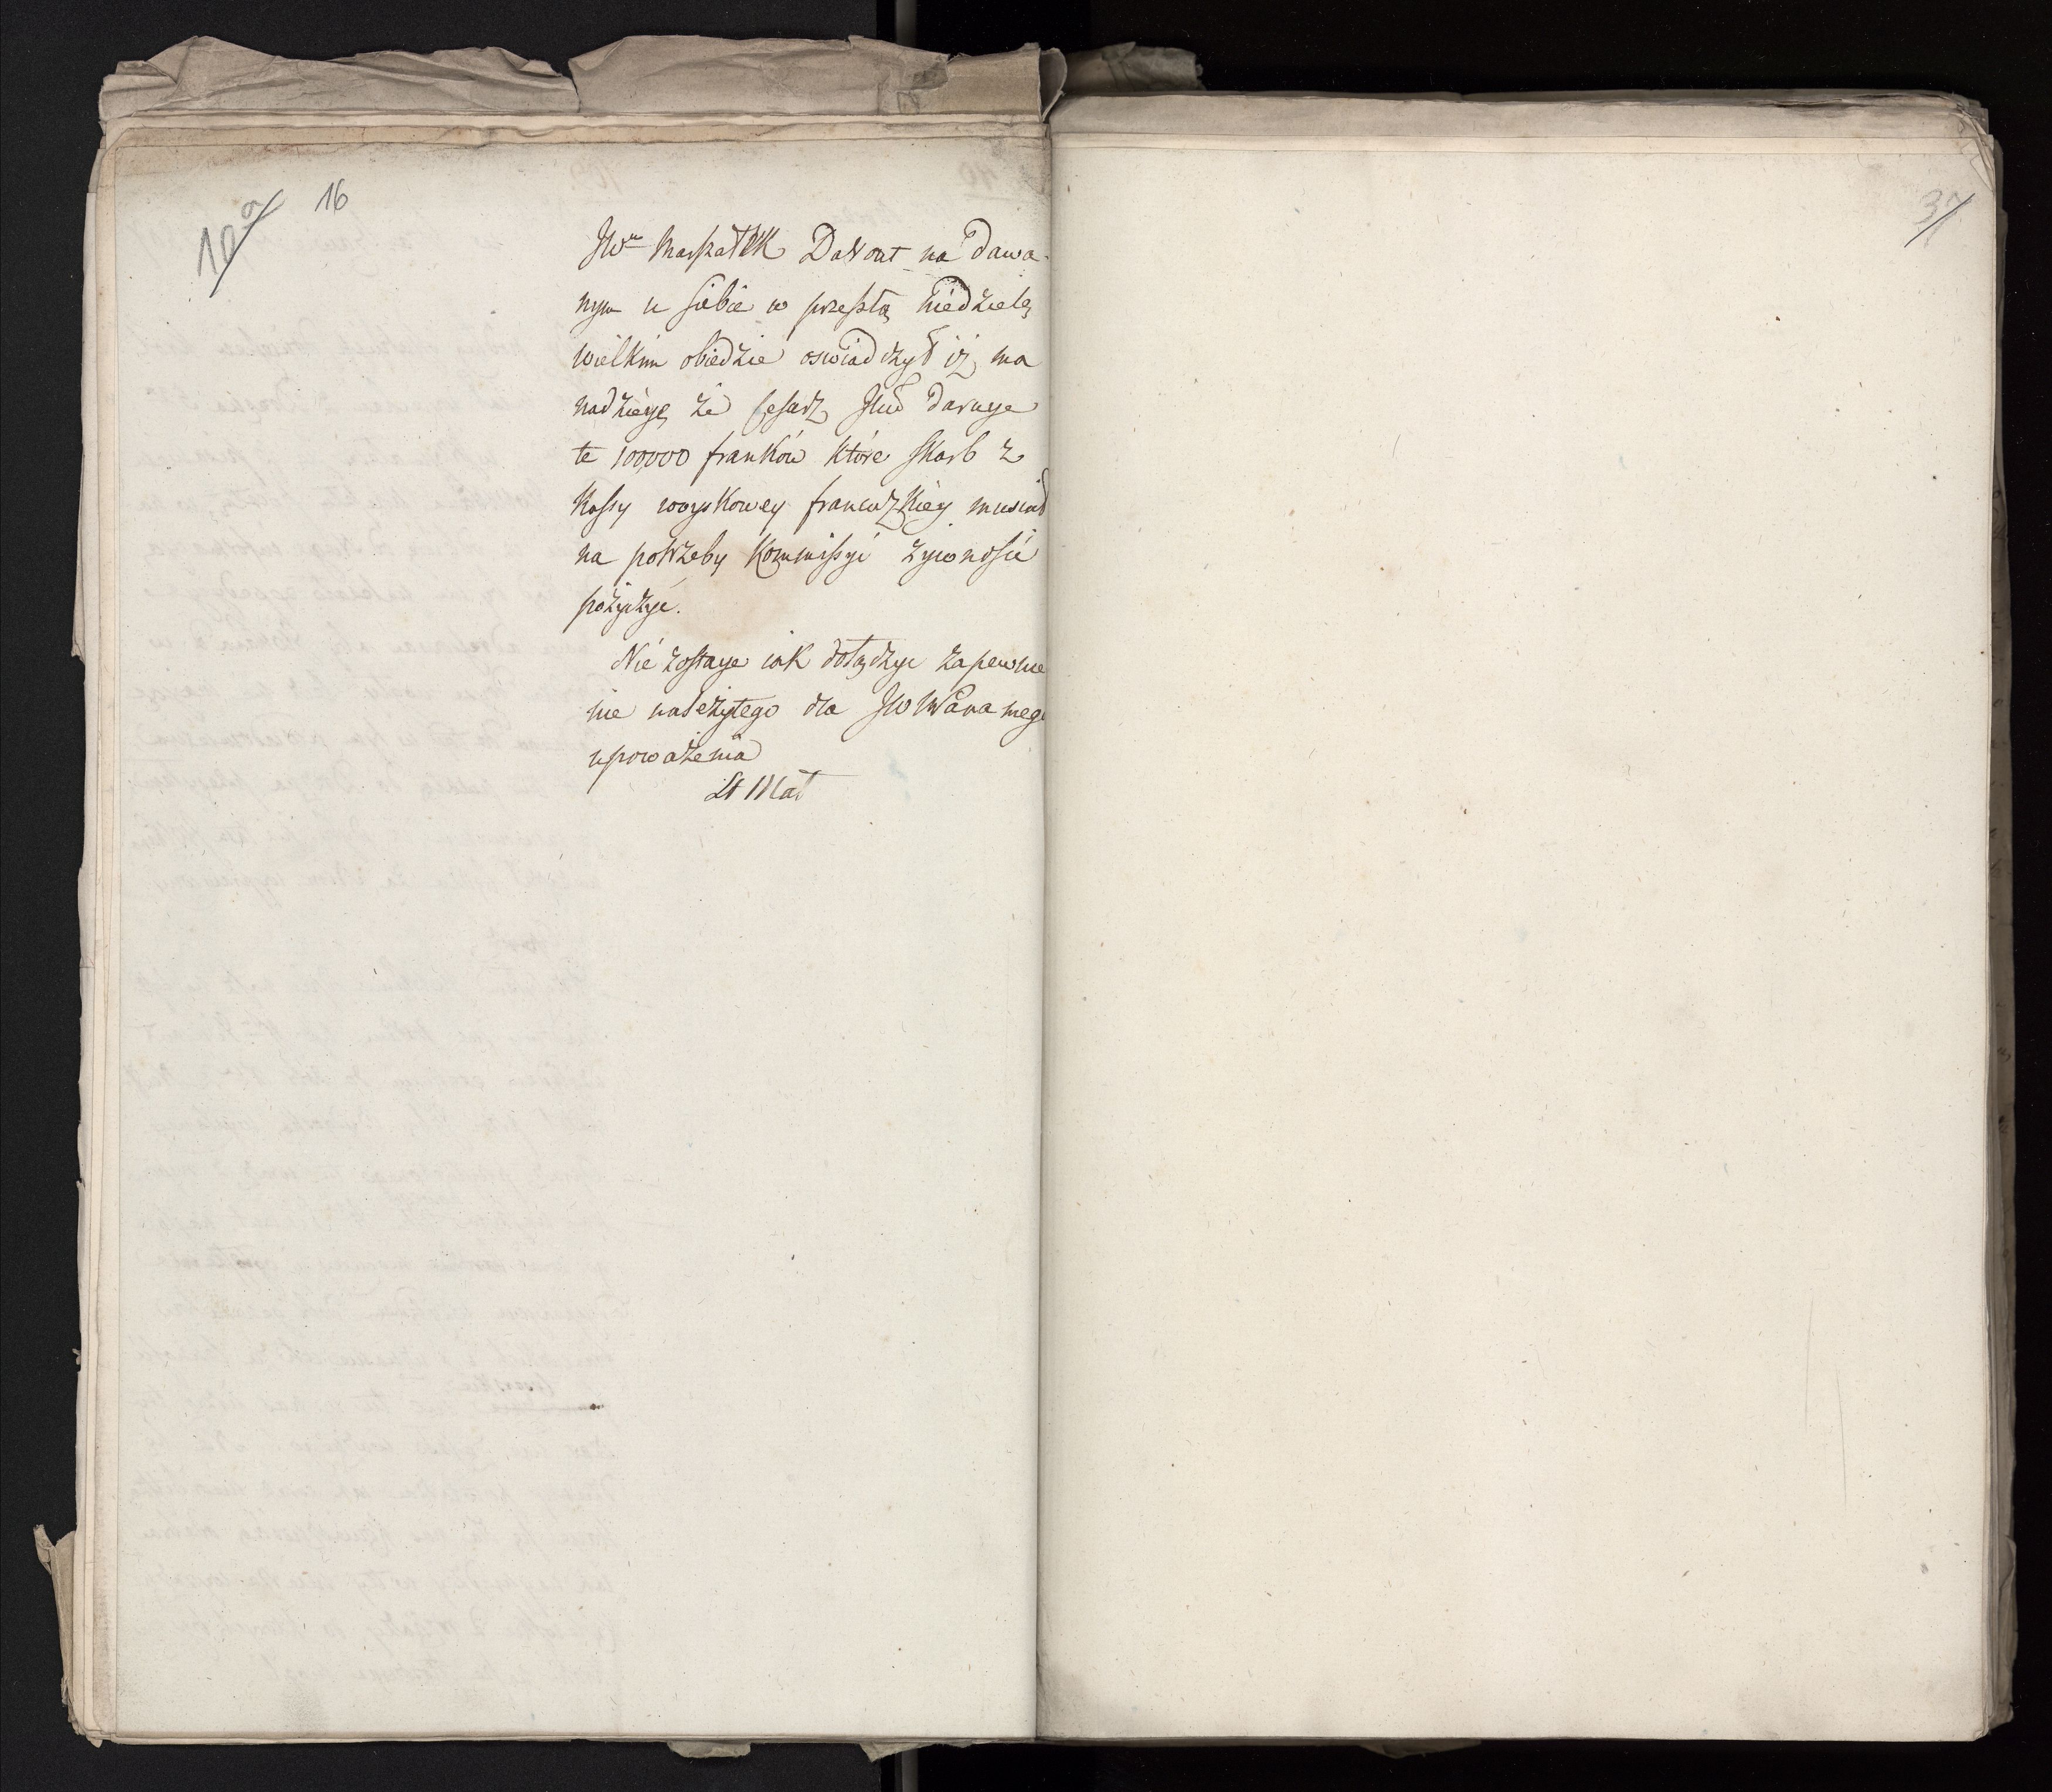 16
JWn Marszałek Davout na dawa-
nym u siebie w przeszłą niedzielę
wielkim obiedzie oswiadczył iż ma
nadzieję że Cesarz Jmć daruje
te 100,000 franków które skarb z
kassy woyskowey francuzkiey musiał
na potrzeby Kommissyi żywności
pożyczyć.
Nie zostaye iak dołączyc zapewnie
nie należytego dla JW Pana mego
upoważenia
37